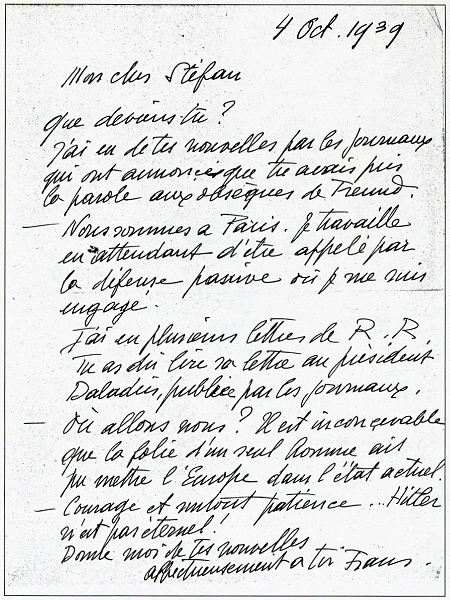 4 Oct. 1939
Mon cher Stéfan
que deviens tu ?
J'ai eu de tes nouvelles par les journaux
qui ont annoncé que tu avais pris
la parole aux obsèques de Freund.
— Nous sommes a Paris. Je travaille
en attendant d'être appelé par
la défense passive où je me suis
engagé.
J'ai eu plusieurs lettres de R. R.
Tu as dû lire sa lettre au président
Daladier, publiée par les journaux.
— Où allons nous ? Il est inconcevable
que la folie d'un seul homme ait
pu mettre l'Europe dans l'état actuel.
— Courage et surtout patience ... Hitler
n'est pas éternel !
Donne moi de tes nouvelles
affectueusement a toi Frans.